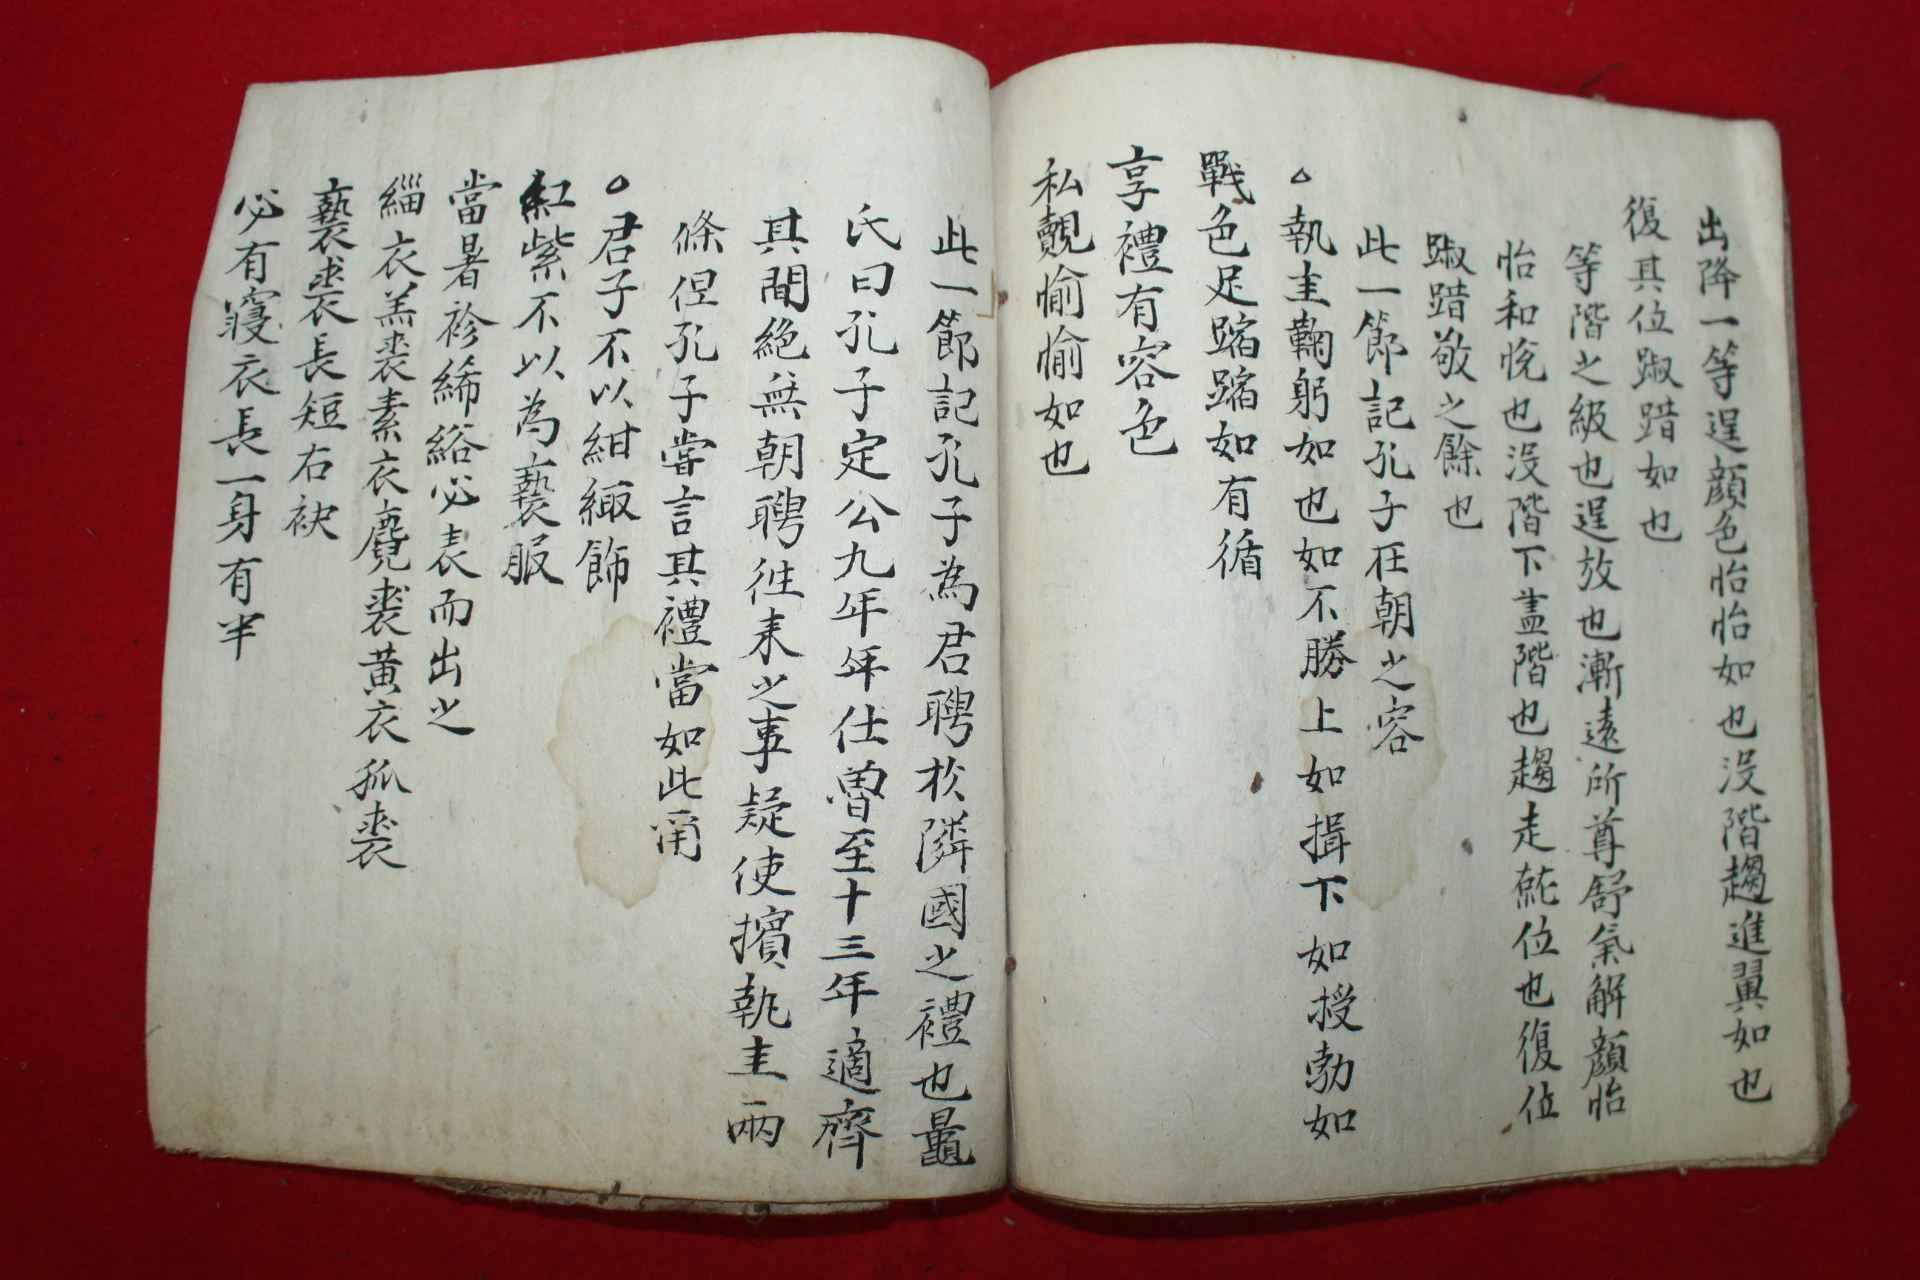 出降一等逞顔色怡怡如也没階趨進翼如也
復其位踧踖如也
等階之級也逞放也漸遠所尊舒氣解顔怡
怡和悅也没階下盡階也趨走就位也復位
踧踖敬之餘也
此一節記孔子在朝之容
執圭鞠躬如也如不勝上如揖下如授勃如
戰色足蹜蹜如有循
享禮有容色
私覿愉愉如也
此一節記孔子為君聘於隣國之禮也鼂
氏曰孔子定公九年年仕魯至十三年適齊
其間絶無朝聘往来之事疑使擯執圭兩
條但孔子嘗言其禮當如此甭
君子不以紺緅飾
紅紫不以為褻服
當暑袗絺綌必表而出之
緇衣羔裘素衣麑裘黄衣狐裘
褻裘長短右袂
必有寢衣長一身有半